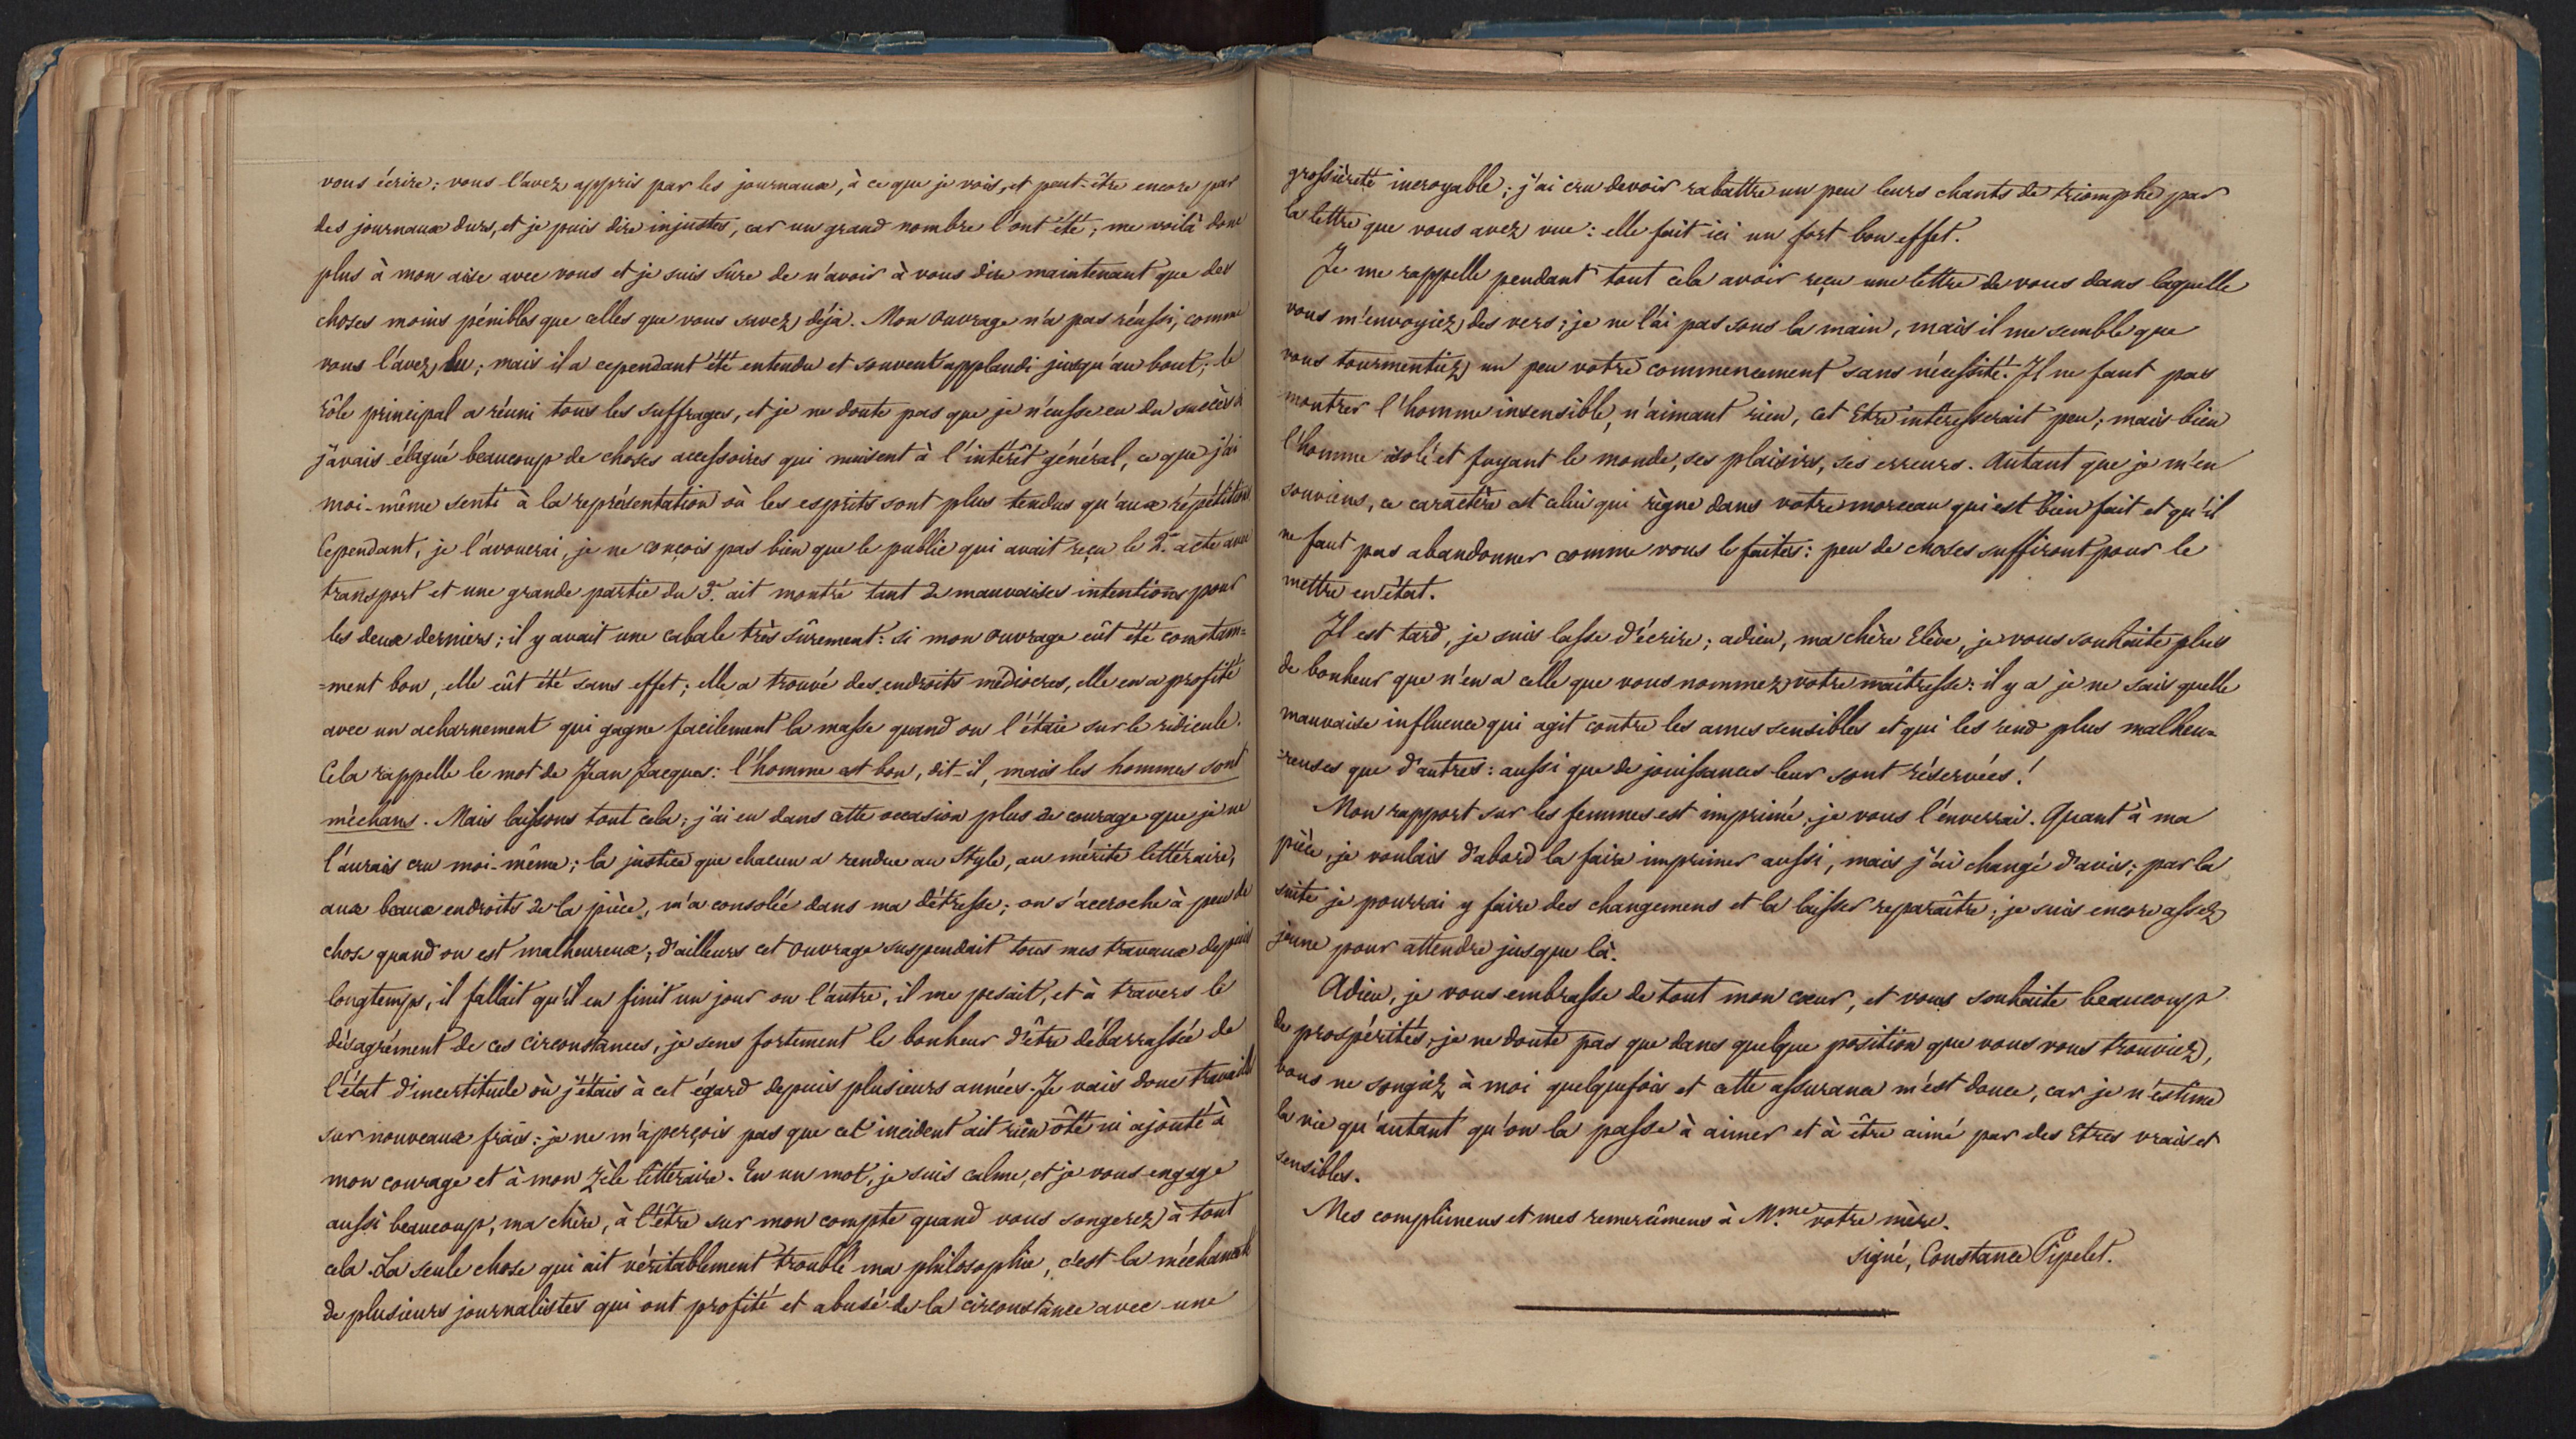 vous écrire; vous l'avez appris par les journaux, à ce que je vois, et peut-être encore par
des journaux durs, et je puis dire injustes, car un grand nombre l'ont été; me voilà donc
plus à mon aise avec vous et je suis sûre de n'avoir à vous dire maintenant que des
choses moins pénibles que celles que vous savez déja. Mon Ouvrage n'a pas réussi, comme
vous l'avez lu; mais il a cependant été entendu et souvent applaudi jusqu'au bout; le
rôle principal a réuni tous les suffrages, et je ne doute pas que je n'eusse eu du succès si
j'avais élagué beaucoup de choses accessoires qui nuisent à l'intérêt général, ce que j'ai
moi-même senti à la représentation où les esprits sont plus tendus qu'aux répétitions
Cependant, je l'avouerai, je ne conçois pas bien que le public qui avait reçu le 2e. acte avec
transport et une grande partie du 3e. ait montré tant de mauvaises intentions pour
les deux derniers; il y avait une cabale très sûrement: si mon ouvrage eût été constam=
=ment bon, elle eût été sans effet; elle a trouvé des endroits médiocres, elle en a profité
avec un acharnement qui gagne facilement la masse quand on l'étaie sur le ridicule.
Cela rappelle le mot de Jean Jacques: l'homme est bon, dit-il, mais les hommes sont
méchans. Mais laissons tout cela; j'ai eu dans cette occasion plus de courage que je ne
l'aurais cru moi-même; la justice que chacun a rendue au Style, au mérite littéraire,
aux beaux endroits de la pièce, m'a consolée dans ma détresse; on s'accroche à peu de
chose quand on est malheureux; d'ailleurs cet Ouvrage suspendait tous mes travaux depuis
longtemps, il fallait qu'il en finit un jour ou l'autre, il me pesait, et à travers le
désagrément de ces circonstances, je sens fortement le bonheur d'être débarrassée de
l'état d'incertitude où j'étais à cet égard depuis plusieurs années. Je vais donc travailler
sur nouveaux frais: je ne m'aperçois pas que cet incident ait rien ôté ni ajouté à
mon courage et à mon zèle littéraire. En un mot, je suis calme, et je vous engage
aussi beaucoup, ma chère, à l'être sur mon compte quand vous songerez à tout
cela. La seule chose qui ait véritablement troublé ma philosophie, c'est la méchanceté
de plusieurs journalistes qui ont profité et abusé de la circonstance avec une
grossièreté incroyable; j'ai cru devoir rabattre un peu leurs chants de triomphe par
la lettre que vous avez vue: elle fait ici un fort bon effet.
Je me rappelle pendant tout cela avoir reçu une lettre de vous dans laquelle
vous m'envoyiez des vers; je ne l'ai pas sous la main, mais il me semble que
vous tourmentiez un peu votre commencement sans nécessité. Il ne faut pas
montrer l'homme insensible, n'aimant rien, cet Etre intéresserait peu; mais bien
l'homme isolé et fuyant le monde, ses plaisirs, ses erreurs. Autant que je m'en
souviens, ce caractère est celui qui règne dans votre morceau qui est bien fait et qu'il
ne faut pas abandonner comme vous le faites: peu de choses suffiront pour le
mettre en état.
Il est tard, je suis lasse d'écrire; adieu, ma chère Elève, je vous souhaite plus
de bonheur que n'en a celle que vous nommez votre maîtresse: il y a je ne sais quelle
mauvaise influence qui agit contre les ames sensibles et qui les rend plus malheu=
=reuses que d'autres: aussi que de jouissances leur sont réservées!
Mon rapport sur les femmes est imprimé, je vous l'enverrai. Quant à ma
pièce, je voulais d'abord la faire imprimer aussi, mais j'ai changé d'avis; par la
suite je pourrai y faire des changemens et la laisser reparaître; je suis encore assez
jeune pour attendre jusque là.
Adieu, je vous embrasse de tout mon cœur, et vous souhaite beaucoup
de prospérités, je ne doute pas que dans quelque position que vous vous trouviez,
vous ne songiez à moi quelquefois et cette assurance m'est douce, car je n'estime
la vie qu'autant qu'on la passe à aimer et à être aimé par des Etres vrais et
sensibles.
Mes complimens et mes remercîmens à Mme. votre mère.
signé, Constance Pipelet.